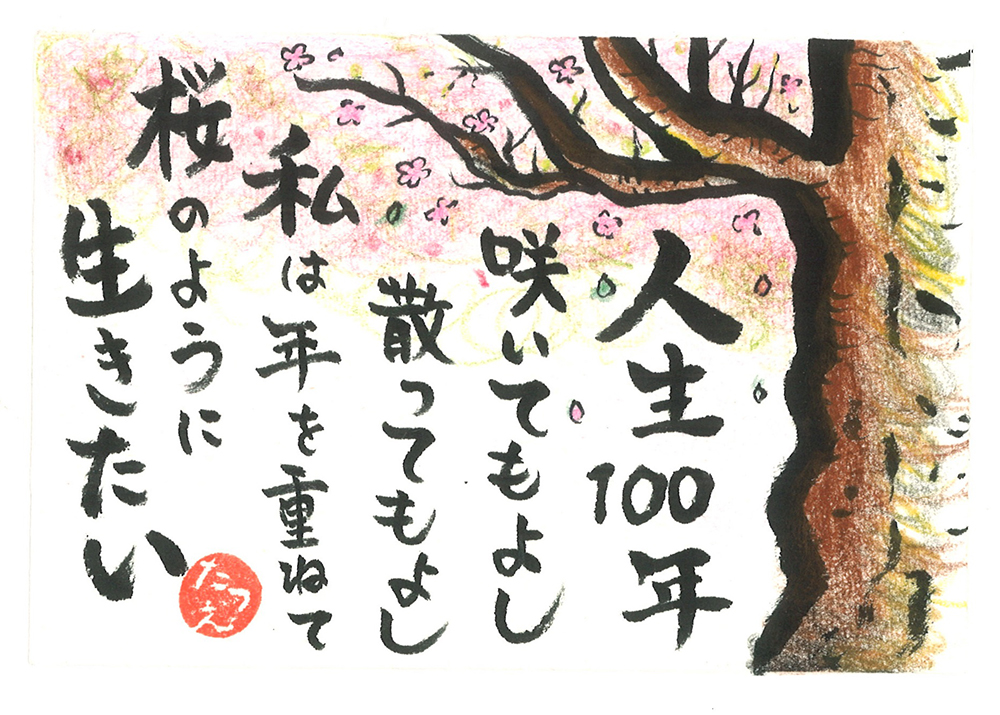 人生100年
咲いてもよし
散ってもよし
私は年を重ねて
桜のように
生きたい
たつえ